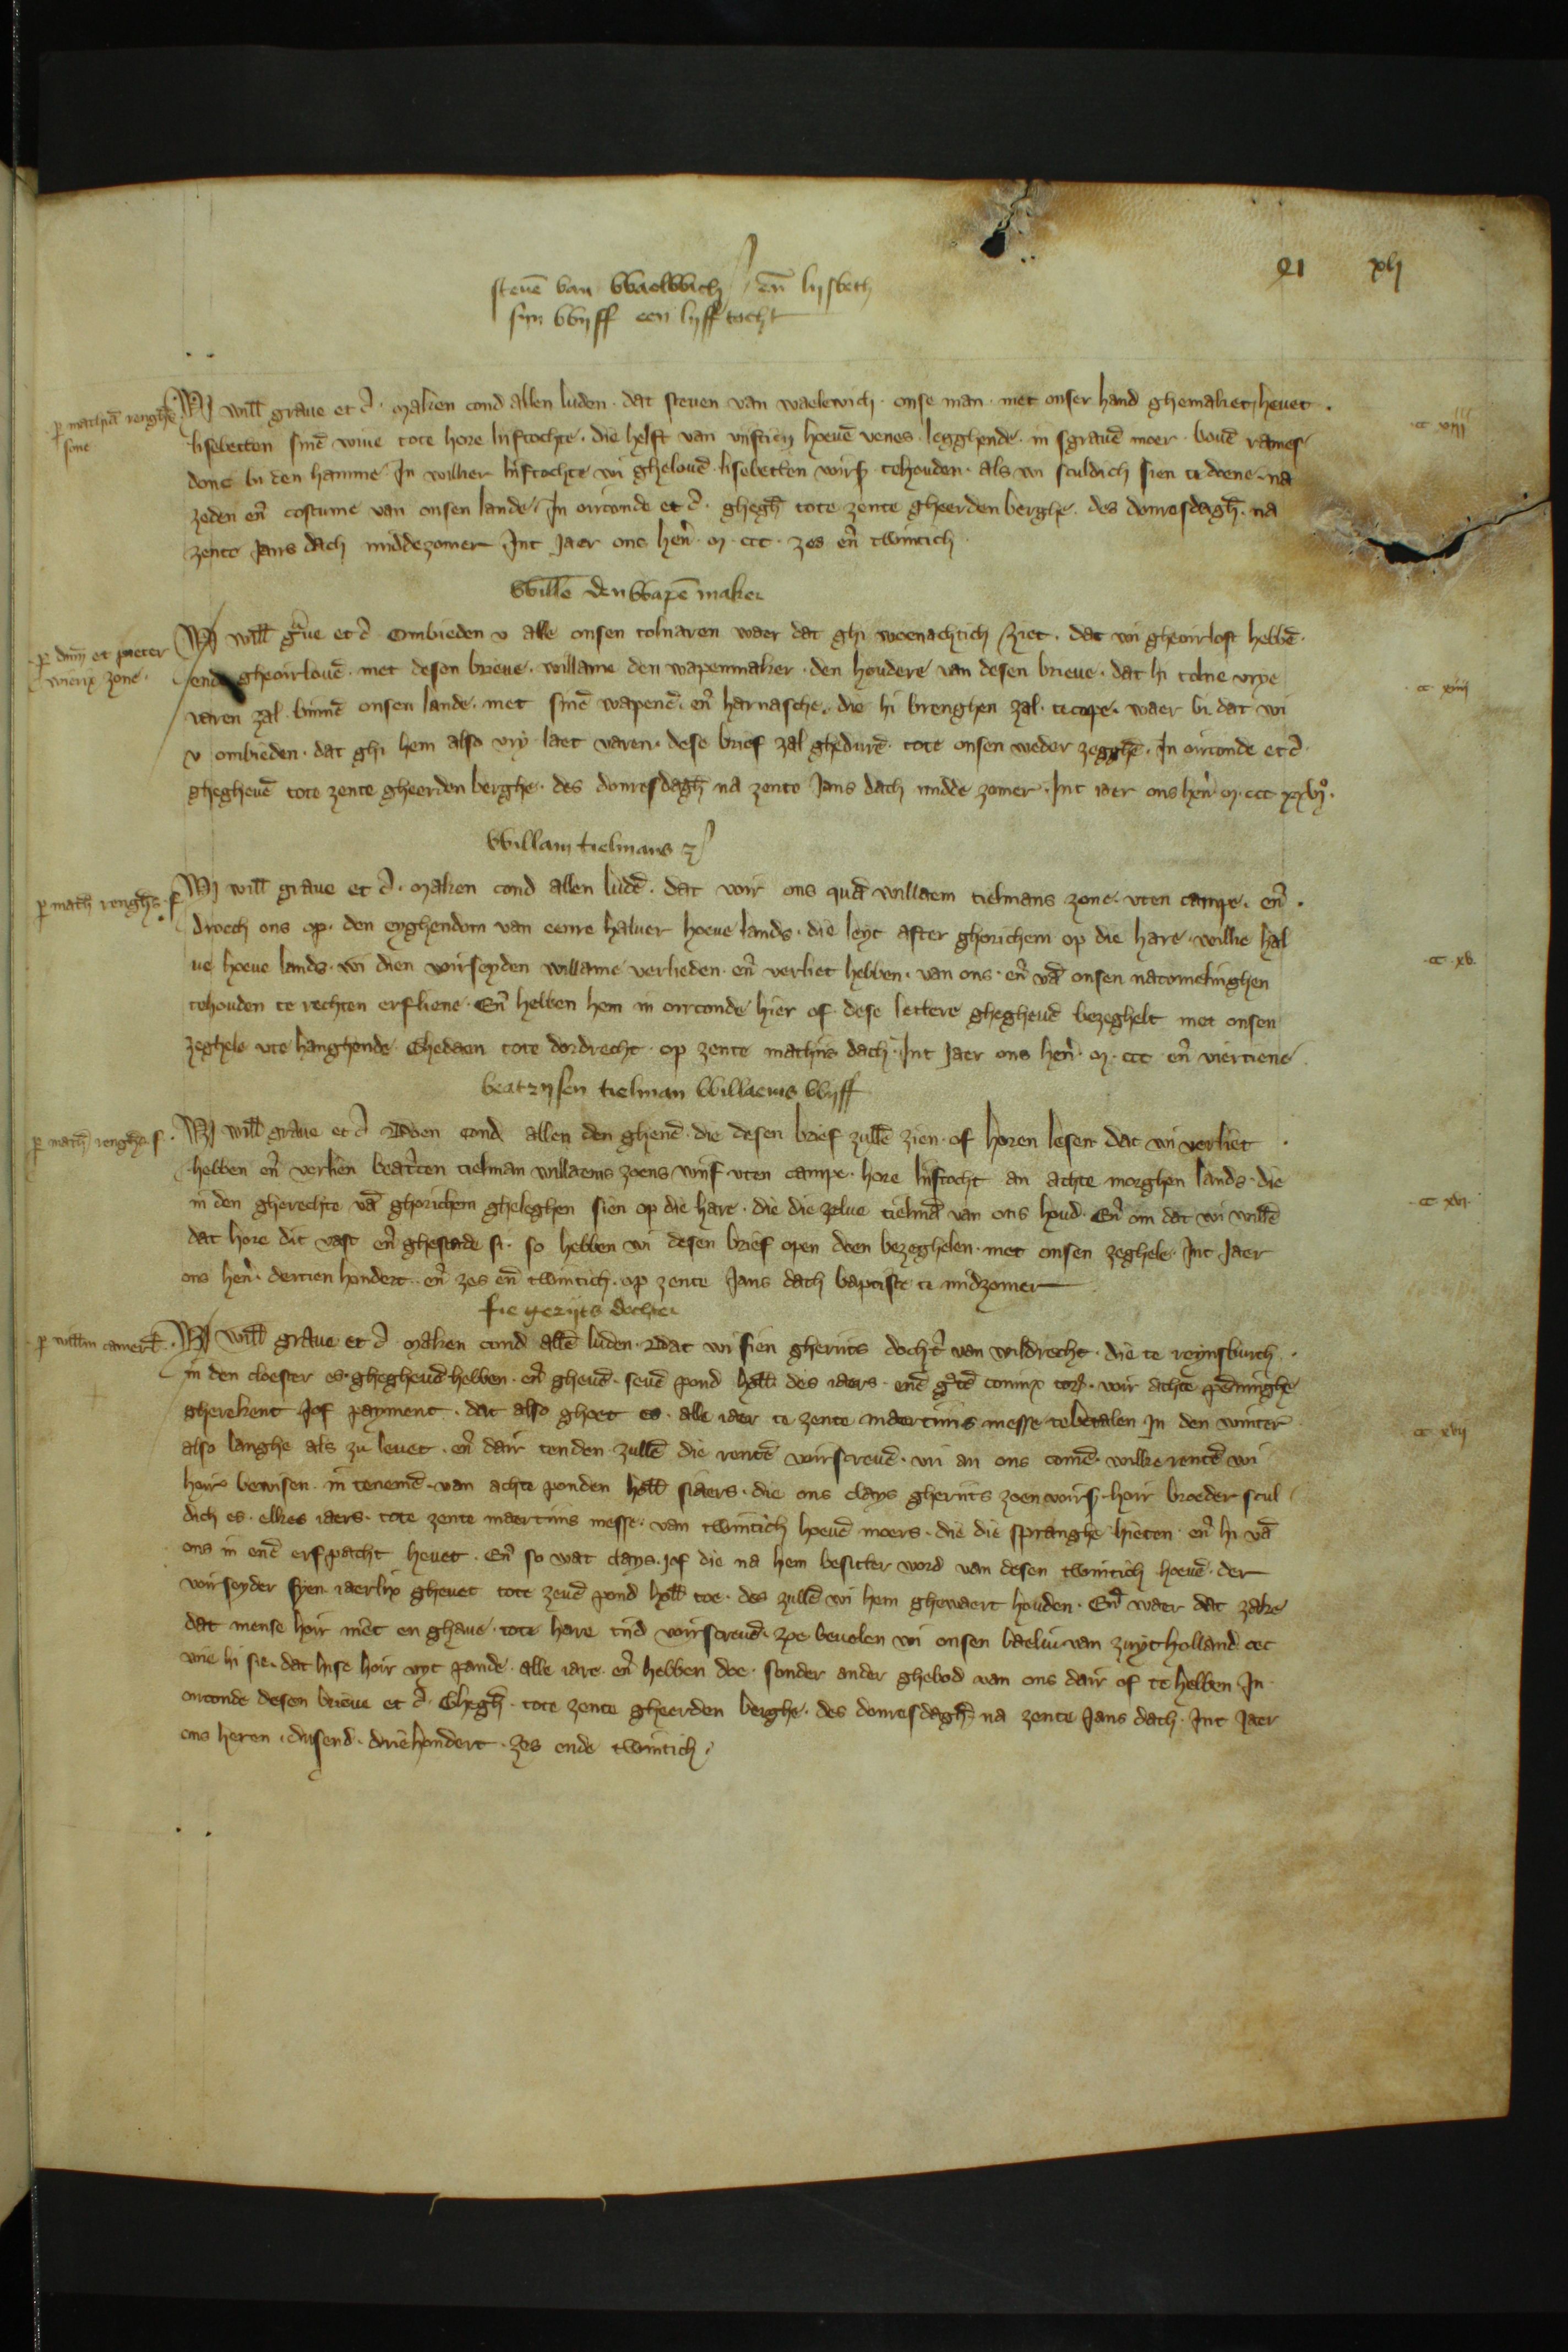 21 xlj
steuē van Waelwich en̄ lijsbeth
sijn wijff een lijfftocht
p matheū renghs
sone
Wi will̄ graue et c̄. maken cond allen luden. dat steuen van waelewich. onse man. met onser hand ghemaket heuet.
lisebetten sinē wiue tote hore liftochte. die helft van viftien hoeuē venes. legghende. in sgrauē moer. bouē rames
donc bi den hamme. In wilker liftochte wi ghelouē lisebetten voirs̄. tehouden. als wi sculdich sien te doene. na
zeden en̄ costume van onsen lande. In orconde et c̄. ghegh̄ tote zente gheerden berghe. des donresdagh̄. na
zente Jans dach middezomer. Int Jaer ons hen̄. m. ccc. zes en̄ twintich.
cc xiij
Willē den wapē maker
p dnm̄ et pieter
wierix zone.
Wi will̄ g̊ue et c̄. Ombieden v alle onsen tolnaren waer dat ghi woenachtich ziet. dat wi gheoirloft hebbē.
ende gheoirlouē. met desen brieue. willame den wapenmaker. den houdere van desen brieue. dat hi tolne vrye
varen zal. binnē onsen lande. met sinē wapenē. en̄ harnasche. die hi brenghen zal. te cope. waer bi dat wi
v ombieden. dat ghi hem also vry laet varen. dese brief zal ghedurē. tote onsen weder zegghē. In oirconde et c̄.
ghegheuē tote zente gheerden berghe. des donresdagh̄ na zente Jans dach midde zomer. Int iaer ons hen̄ m. ccc xxvjº.
cc xiiij
Willam tielmans z
p math̄ renghs. s
Wi will̄ graue et c̄. maken cond allen ludē. dat voir ons quā willaem tielmans zone. vten campe. en̄.
droech ons op. den eyghendom van eenre haluer hoeue lands. die leyt after ghorichem op die hare. wilke hal
ue hoeue lands. wi dien voirseyden willame verlieden. en̄ verliet hebben. van ons. en̄ vā onsen nacomelinghen
tehouden te rechten erfliene. En̄ hebben hem in orconde hier of. dese lettere ghegheuē bezeghelt met onsen
zeghele vte hanghende. Ghedaen tote dordrecht. op zente mathijs dach. Int Jaer ons hen̄. m. ccc en̄ viertiene.
cc xv.
beatrijsen tielman Willaems wijff
p math̄ renghs. s.
Wi will̄ graue et c̄. Doen cond allen den ghenē. die desen brief zullē zien. of horen lesen dat wi verliet
hebben en̄ verlien beatten tielman willaems zoens wiif vten campe. hore liftocht an achte morghen lands. die
in den gherechte vā ghorichem gheleghen sien op die hare. die die zelue tielmā van ons houd. En̄ om dat wi willē
dat hore dit vast en̄ ghestade si. so hebben wi desen brief open doen bezeghelen. met onsen zeghele. Int Jaer
ons hen̄. dertien hondert. en̄ zes en̄ twintich. op zente Jans dach baptiste te midzomer
cc xvi
fie gerijts dochter
p will̄m camerl̄.
Wi will̄ graue et c̄. maken cond allē luden. Dat wi sien gheriits docht̄ van wildrecht. die te reynsburch.
in den cloester es. ghegheuē hebben. en̄ gheuē. seuē pond holl̄. des iaers. enē g̊tē coninx torn̄. voir achte pēninghe
gherekent Jof payment. dat also ghoet es. alle iaer te zente maertiins messe tebetalen in den winter
also langhe als zu leuet. en̄ dair tenden zullē die rentē voirscreuē. vri an ons comē. wilke rentē wi
hoir bewisen. in tenemē. van achte ponden holl̄ siaers. die ons clays gheriits zoen voirs̄. hoir broeder scul
dich es. elkes iaers. tote zente maertiins messe. van twintich hoeuē moers. die die spranghe hieten. en̄ hi vā
ons in enē erfpacht heuet. En̄ so wat clays. Jof die na hem besitter word van desen twintich hoeuē. der
voirseyder syen. iaerlix gheuet tote zeuē pond holl̄ toe. des zullē wi hem ghewaert houden. En̄ waer dat zake
dat mense hoir niet en ghaue. tote hare tiid voirscreuē. zoe beuolen wi onsen baeliu van zuytholland et c
wie hi sie. dat hise hoir vyt pande. alle iare. en̄ hebben doe. sonder ander ghebod van ons dair of te hebben. In
orconde desen brieue et c̄. Ghegh̄. tote zente gheerden berghe. des donresdagh̄. na zente Jans dach. Int Jaer
ons heren. dusend. driehondert. zes ende twintich.
cc xvij